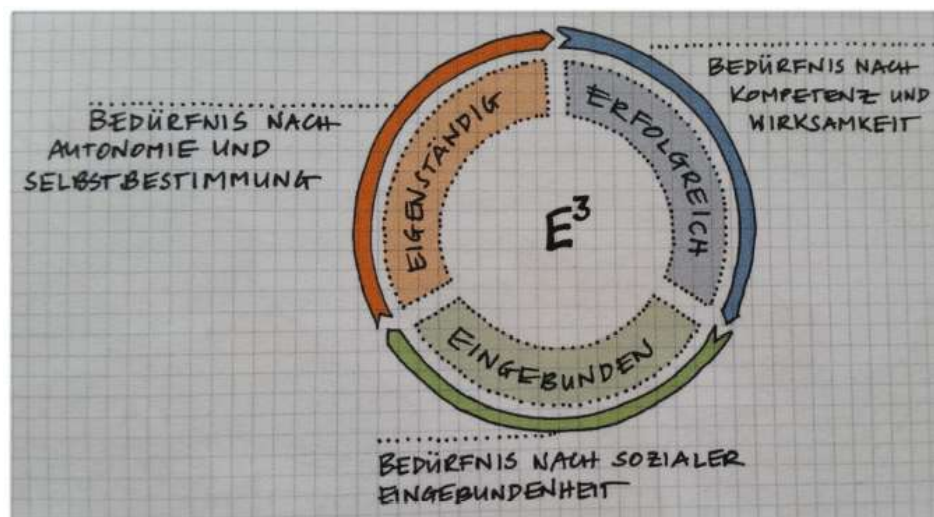 BEDÜRFNIS NACH
AUTONOMIE UND
SELBSTBESTIMMUNG
EIGENSTÄNDIG
ERFOLGREICH
BEDÜRFNIS NACH
KOMPETENZ UND
WIRKSAMKEIT
E³
EINGEBUNDEN
BEDÜRFNIS NACH SOZIALER
EINGEBUNDENHEIT